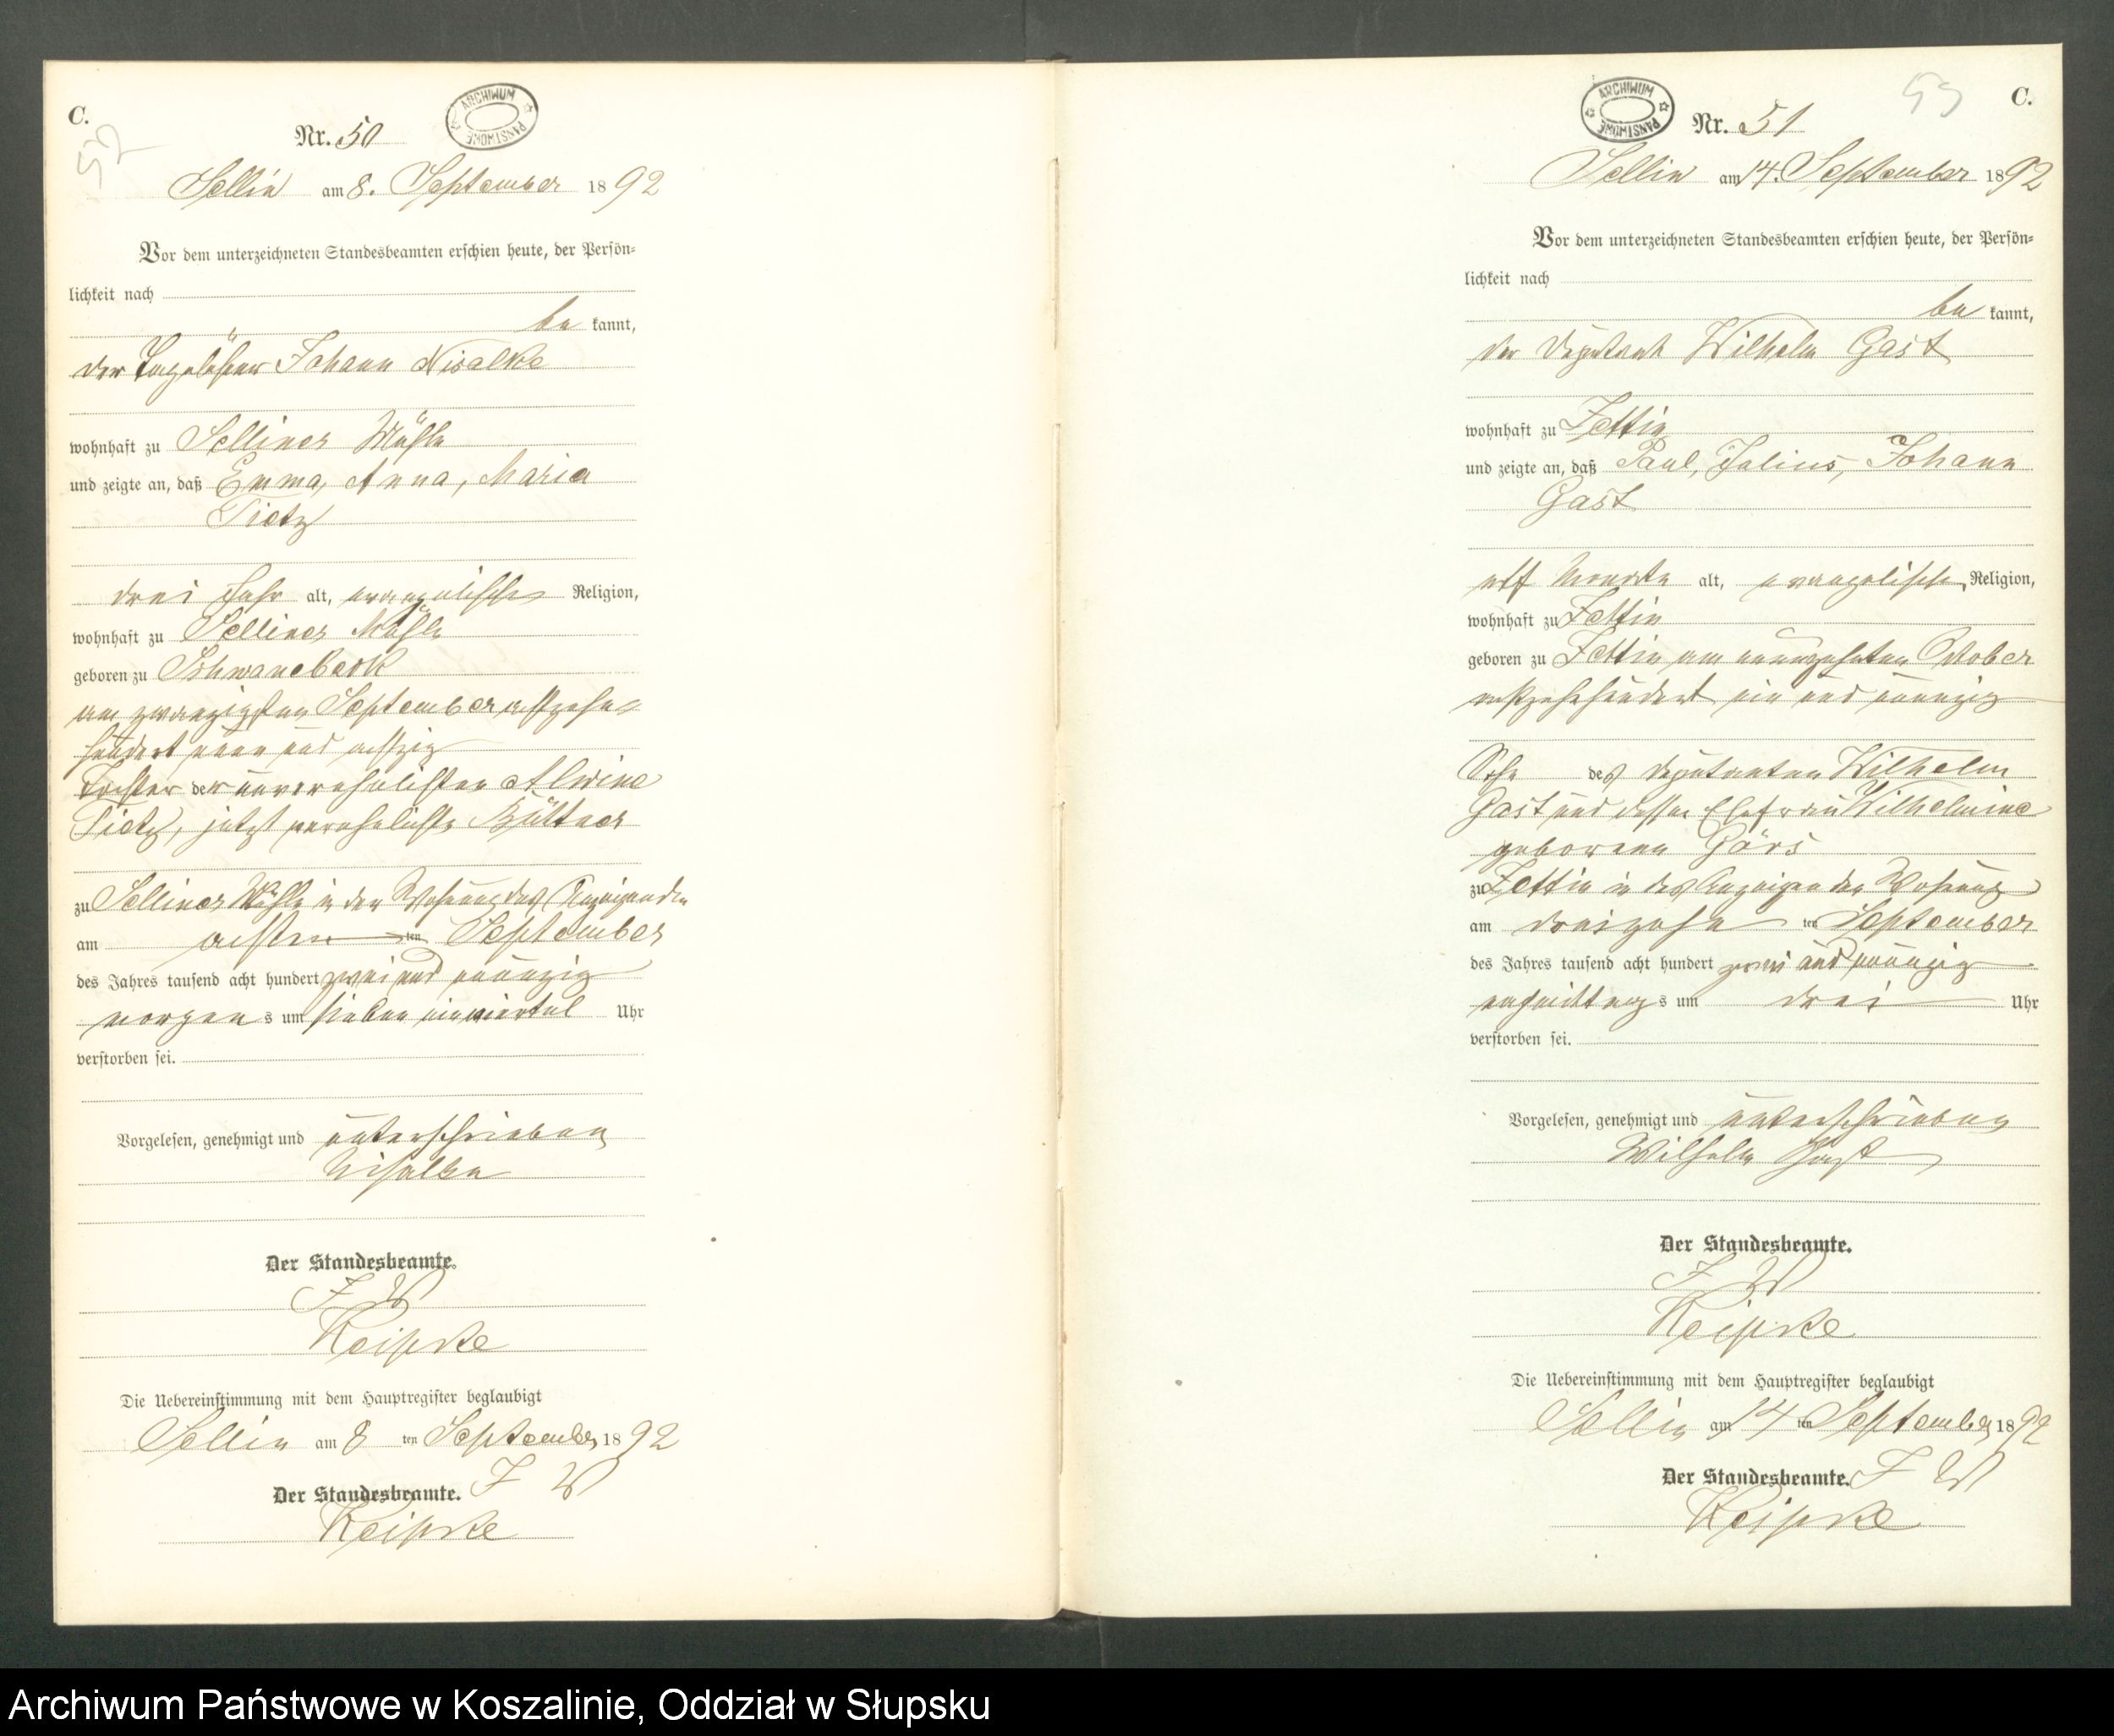 C.
52
Nr. 50
ARCHIWUM PAŃSTWOWE
Sellin am 8. September 1892
Vor dem unterzeichneten Standesbeamten erschien heute, der Persön=
lichkeit nach
be kannt,
der Tagelöhner Johann
wohnhaft zu Selliner Mühle
und zeigte an, daß Emma, Anna, Maria
Tietz
drei Jahr alt, evangelischer Religion,
wohnhaft zu Selliner Mühle
geboren zu Schwanebeck
am zwanzigsten September achtzehn=
hundert neun und achtzig
Tochter der unverehelichten Alwine
Tietz, jetzt verehelichte Büttner
zu Selliner Mühle in der Wohnung des Anzeigenden
am achten ten September
des Jahres tausend acht hundert zwei und neunzig
morgens um sieben ein viertel Uhr
verstorben sei.
Vorgelesen, genehmigt und unterschrieben
Der Standesbeamte.
J W
Keipke
Die Uebereinstimmung mit dem Hauptregister beglaubigt
Sellin am 8 ten September 1892
Der Standesbeamte. J W
Keipke
ARCHIWUM PAŃSTWOWE
53
C.
Nr. 51
Sellin am 14. September 1892
Vor dem unterzeichneten Standesbeamten erschien heute, der Persön=
lichkeit nach
be kannt,
der Deputant Wilhelm Gast
wohnhaft zu Zettin
und zeigte an, daß Paul, Julius, Johann
Gast
elf Monate alt, evangelischer Religion,
wohnhaft zu Zettin
geboren zu Zettin am neunzehnten October
achtzehnhundert ein und neunzig
Sohn des Deputanten Wilhelm
Gast und dessen Ehefrau Wilhelmine
geborene Görs
zu Zettin in des Anzeigenden Wohnung
am dreizehn ten September
des Jahres tausend acht hundert zwei und neunzig
nachmittags um drei Uhr
verstorben sei.
Vorgelesen, genehmigt und unterschrieben
Wilhelm Gast
Der Standesbeamte.
J W
Keipke
Die Uebereinstimmung mit dem Hauptregister beglaubigt
Sellin am 14 ten September 1892
Der Standesbeamte. J W
Keipke
Archiwum Państwowe w Koszalinie, Oddział w Słupsku